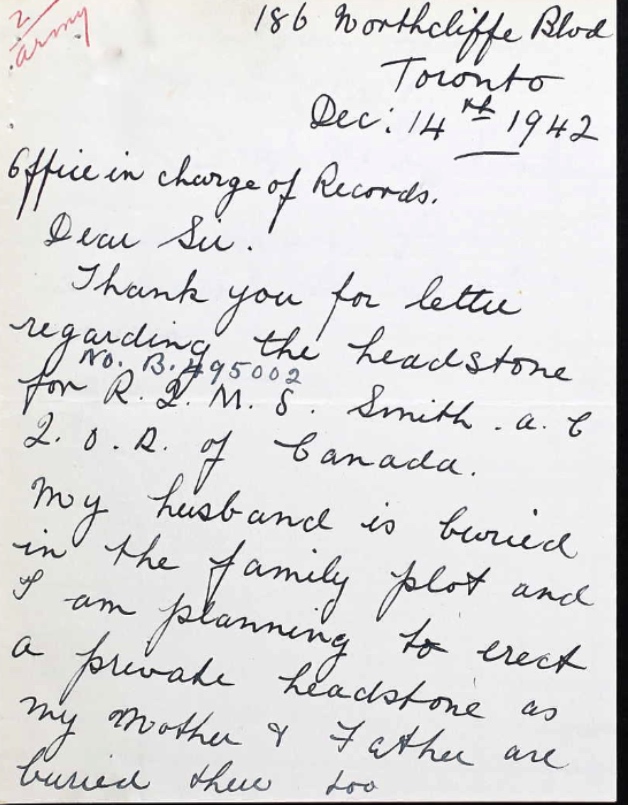 2/
army
186 Northcliffe Blvd
Toronto
Dec: 14th 1942
Office in charge of Records.
Dear Sir.
Thank you for letter
regarding the headstone
No. B. 495002
for R. Q. M. S. Smith. A. C
Q. O. R. of Canada.
My husband is buried
in the family plot and
I am planning to erect
a private headstone as
my Mother & Father are
buried there too